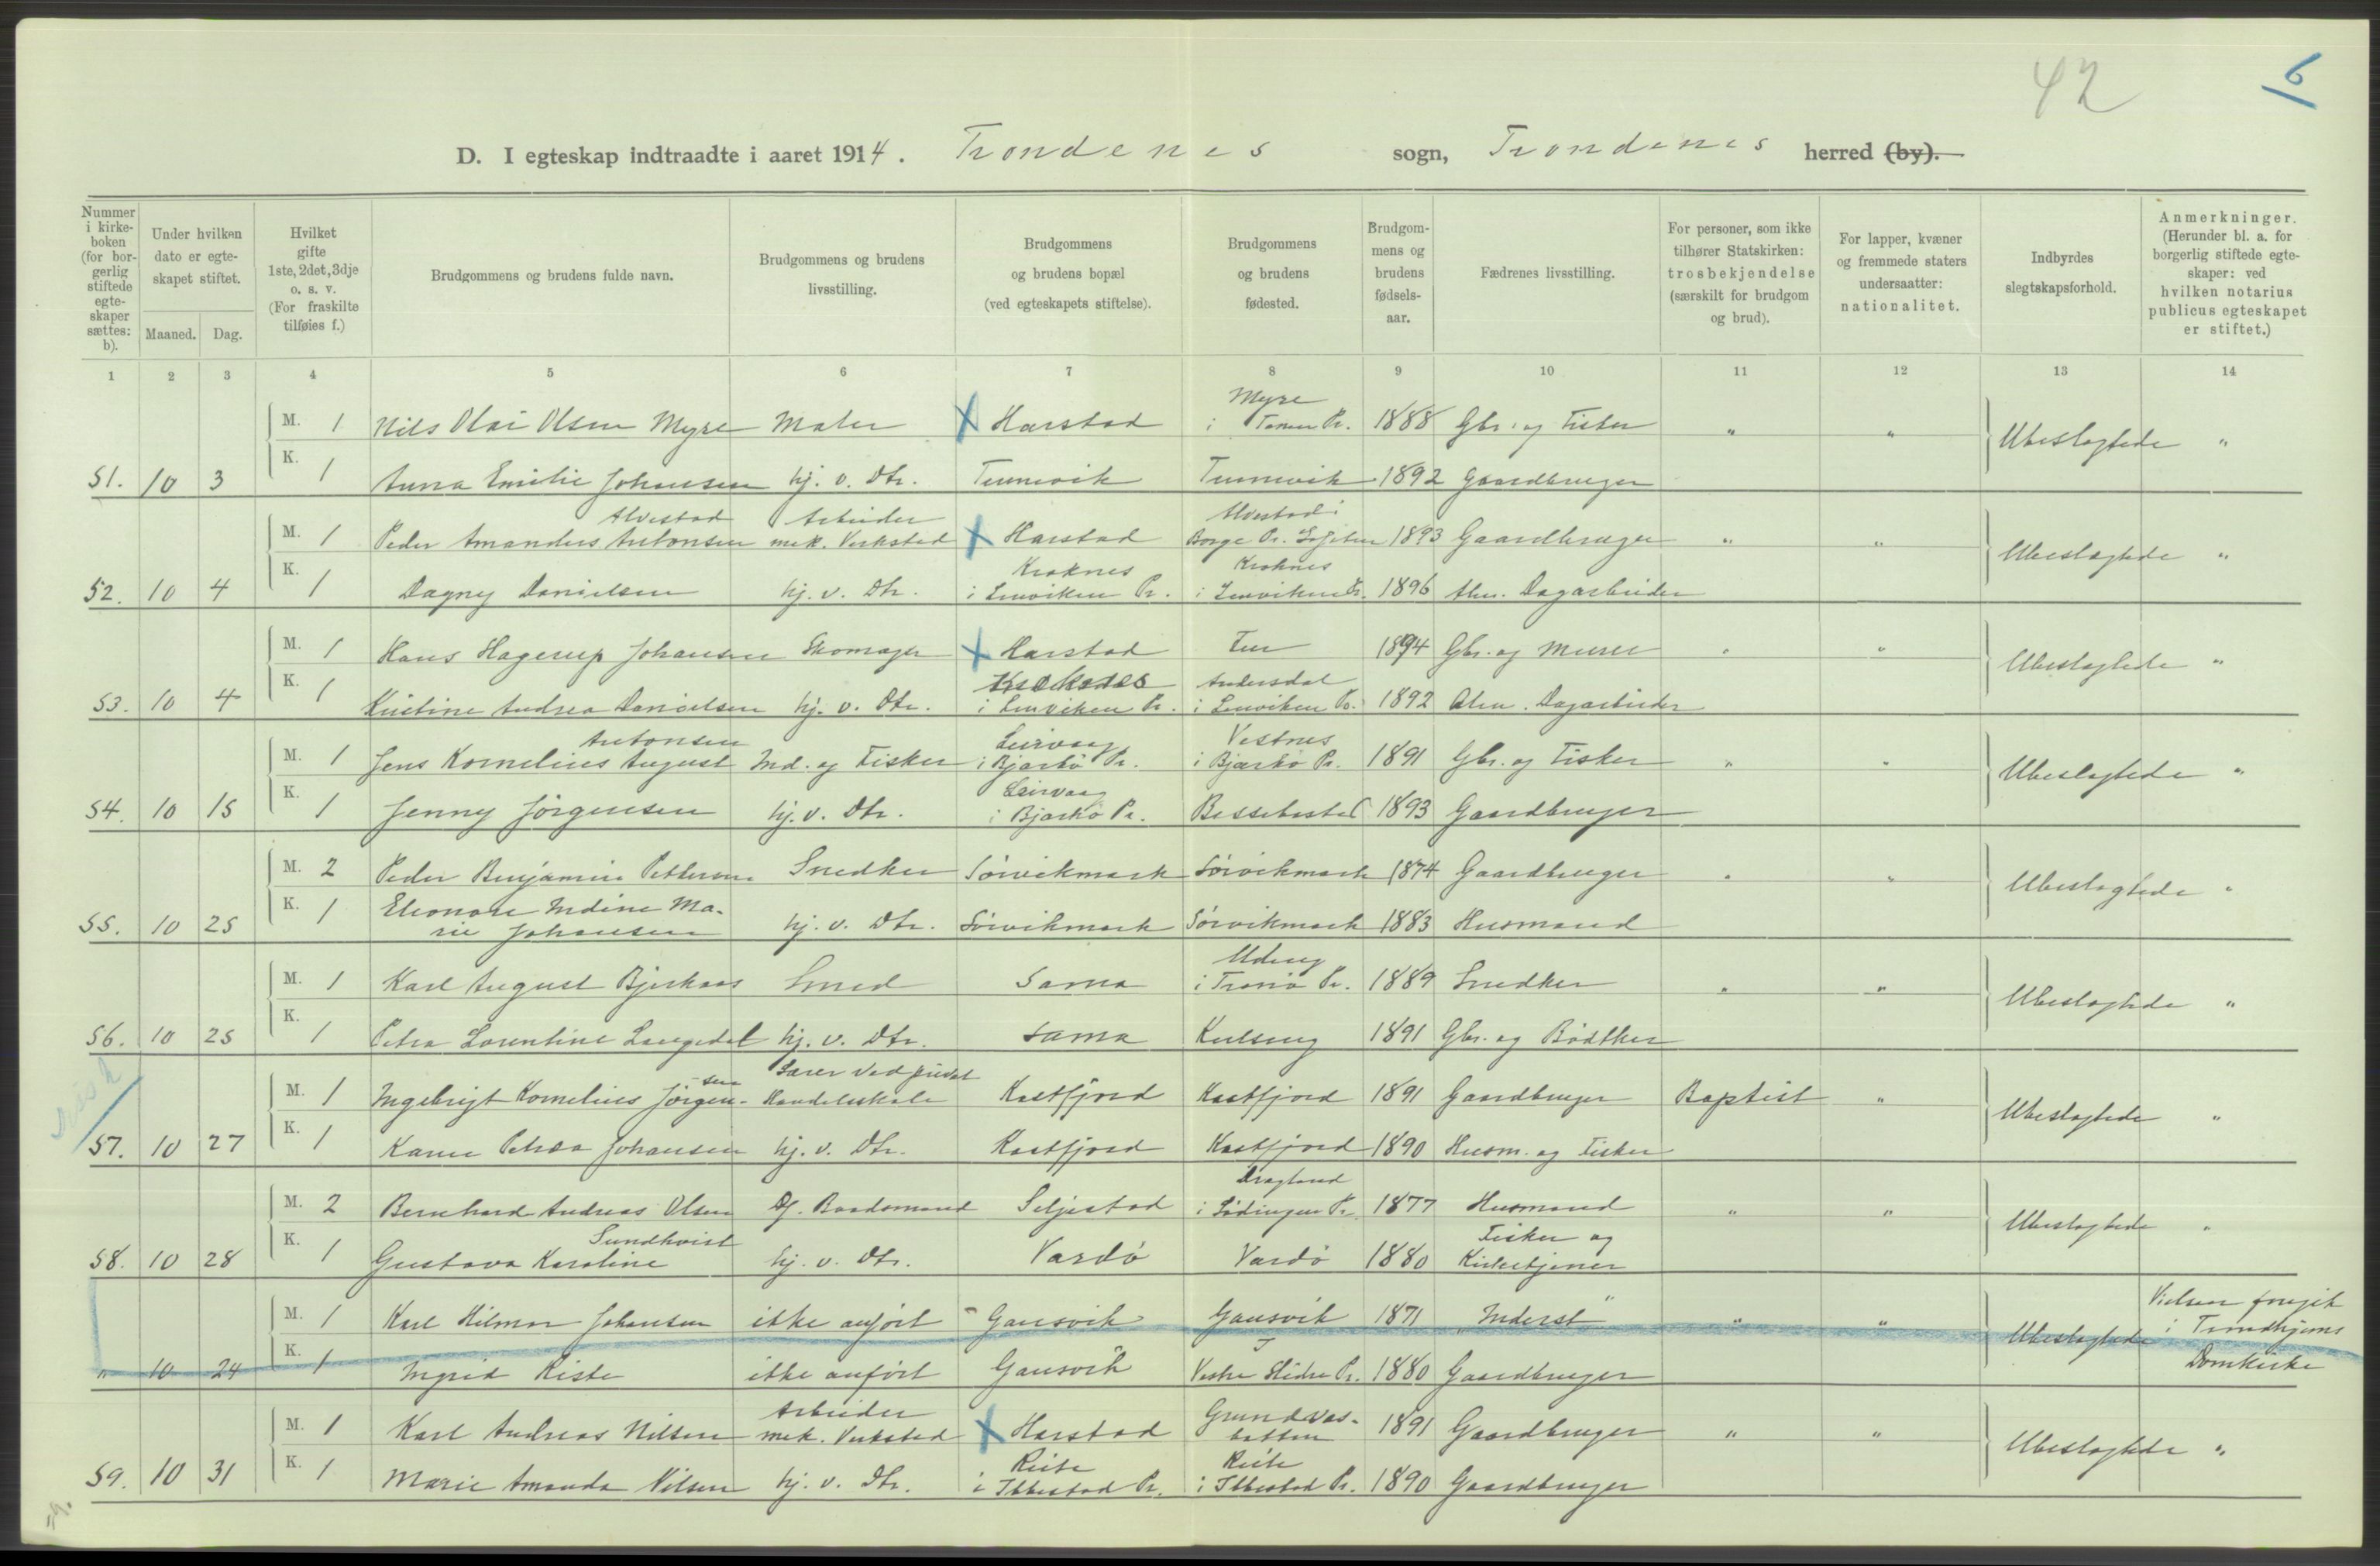 42
6
D. I egteskap indtraadte i aaret 1914. Trondenes sogn, Trondenes herred (by).
Nummer i kirkeboken (for borgerlig stiftede egteskaper sættes: b).
Under hvilken dato er egteskapet stiftet.
Maaned. Dag.
Hvilket gifte 1ste, 2det, 3dje o. s. v. (For fraskilte tilføies f.)
Brudgommens og brudens fulde navn.
Brudgommens og brudens livsstilling.
Brudgommens og brudens bopæl (ved egteskapets stiftelse).
Brudgommens og brudens fødested.
Brudgommens og brudens fødselsaar.
Fædrenes livsstilling.
For personer, som ikke tilhører Statskirken: trosbekjendelse (særskilt for brudgom og brud).
For lapper, kvæner og fremmede staters undersaatter: nationalitet.
Indbyrdes slegtskapsforhold.
Anmerkninger. (Herunder bl. a. for borgerlig stiftede egteskaper: ved hvilken notarius publicus egteskapet er stiftet.)
1 2 3 4 5 6 7 8 9 10 11 12 13 14
M. 1 Nils Olai Olsen Myre Maler X Harstad Myre i Pr. 1888 Gbr. og Fisker " " Ubeslagtede "
51. 10 3 K. 1 Anna Emilie Johansen hj. v. Dtr. Tennevik Tennevik 1892 Gaardbruger
M. 1 Peder Amandus Antonsen Alvestad Arbeider mek. Verksted X Harstad Alvestad i Borge Pr. 1893 Gaardbruger " " Ubeslagtede "
52. 10 4 K. 1 Dagny Danielsen hj. v. Dtr. Kroknes i Lenviken Pr. Kroknes i Lenviken Pr. 1896 Alm. Dagarbeider
M. 1 Hans Hagerup Johansen Skomager X Harstad 1894 Gbr. og Murer " " Ubeslagtede "
53. 10 4 K. 1 Kristine Andrea Danielsen hj. v. Dtr. Kroknes i Lenviken Pr. Andersdal i Lenviken Pr. 1892 Alm. Dagarbeider
M. 1 Jens Kornelius August Antonsen Ind. og Fisker Leirvaag i Bjarkö Pr. Vestnes i Bjarkö Pr. 1891 Gbr. og Fisker " " Ubeslagtede "
54. 10 15 K. 1 Jenny Jörgensen hj. v. Dtr. Leirvaag i Bjarkö Pr. Bessebostad 1893 Gaardbruger
M. 2 Peder Benjamin Pettersen Snedker Sörvikmark Sörvikmark 1874 Gaardbruger " " Ubeslagtede "
55. 10 25 K. 1 Eleonore Indine Marie Johansen hj. v. Dtr. Sörvikmark Sörvikmark 1883 Husmand
M. 1 Karl August Bjerkaas Smed Sama i Tranö Pr. 1889 Snedker " " Ubeslagtede "
56. 10 25 K. 1 Petra Lorentine Langedal hj. v. Dtr. Sama Kulseng 1891 Gbr. og Bödtker
M. 1 Ingebrigt Kornelius Jörgensen Lærer ved privat Handelsskole Kastfjord Kastfjord 1891 Gaardbruger Baptist " Ubeslagtede "
57. 10 27 K. 1 Karen Petrea Johansen hj. v. Dtr. Kastfjord Kastfjord 1890 Husm. og Fisker
M. 2 Bernhard Andreas Olsen Df. Baadsmand Seljestad Dragland i Lödingen Pr. 1877 Husmand " " Ubeslagtede "
58. 10 28 K. 1 Gustava Karoline Sundkvist hj. v. Dtr. Vardö Vardö 1880 Fisker og Kirketjener
M. 1 Karl Hilmar Johansen ikke anfört Gansvik Gansvik 1871 "Inderst" " " Ubeslagtede Vielsen foregik i Trondhjems Domkirke
" 10 24 K. 1 Ingrid Riste ikke anfört Gansvik Vestre Slidre Pr. 1880 Gaardbruger
M. 1 Karl Andreas Nilsen Arbeider mek. Verksted X Harstad Grundvasbotten 1891 Gaardbruger " " Ubeslagtede "
59. 10 31 K. 1 Marie Amanda Nilsen hj. v. Dtr. i Ibbestad Pr. i Ibbestad Pr. 1890 Gaardbruger